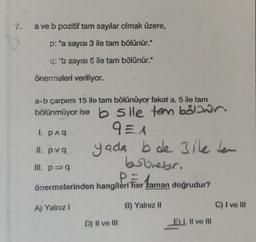 7. a ve b pozitif tam sayılar olmak üzere,
p: "a sayısı 3 ile tam bölünür."
q: "b sayısı 5 ile tam bölünür."
önermeleri veriliyor.
a·b çarpımı 15 ile tam bölünüyor fakat a, 5 ile tam
bölünmüyor ise b 5 ile tam bölünür.
I. p∧q q≡1
II. p∨q yada b de 3 ile tam
III. p⇒q bölünebilir.
p≡1
önermelerinden hangileri her zaman doğrudur?
A) Yalnız I B) Yalnız II C) I ve III
D) II ve III E) I, II ve III